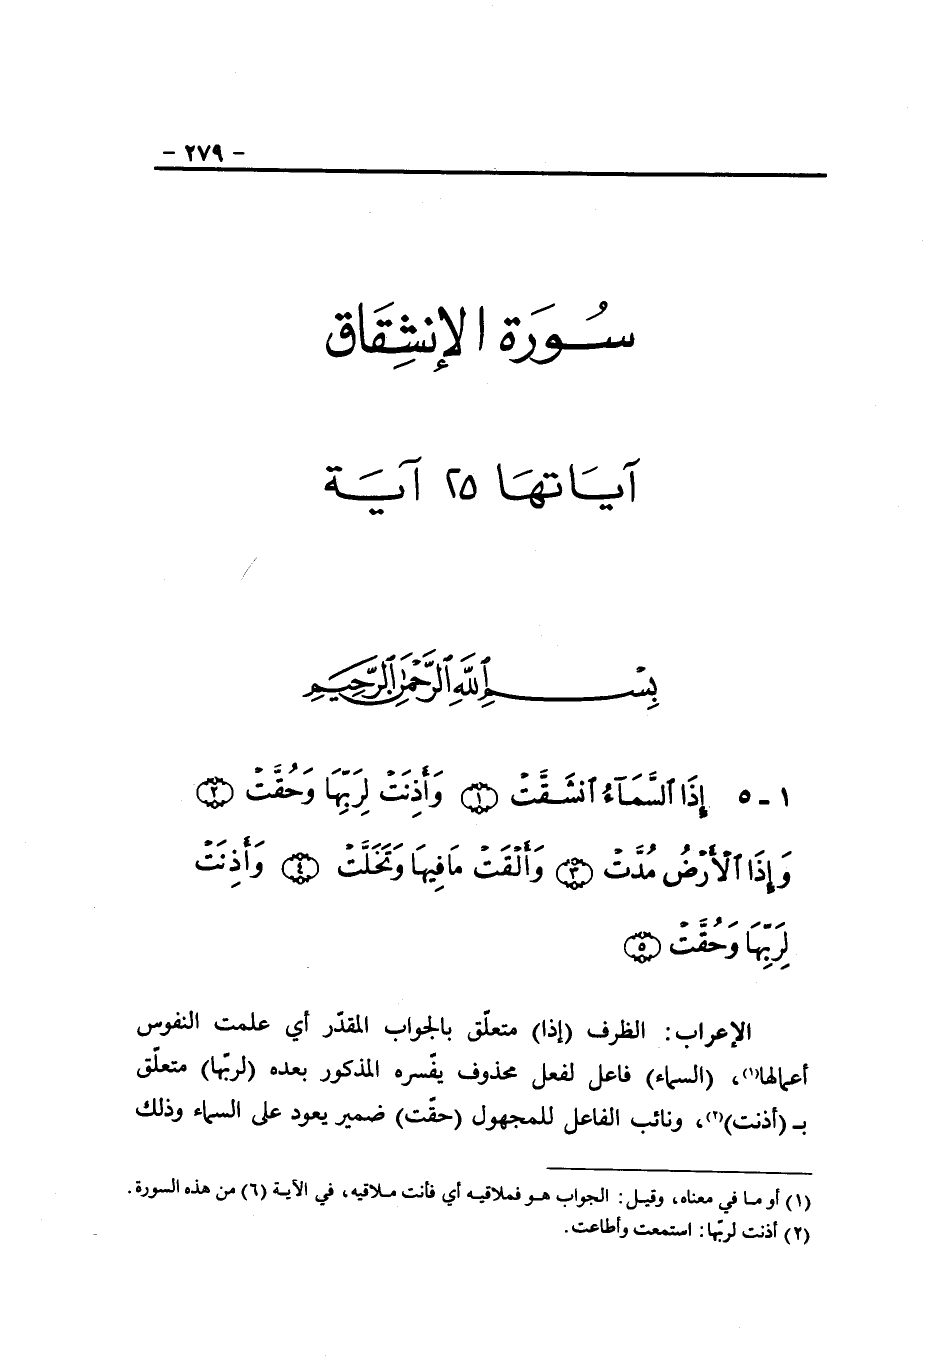 - ٢٧٩ -
سُورَة الإنشِقَاق
آيَاتهَا ٢٥ آيَة
بِسْمِ ٱللَّهِ ٱلرَّحْمَٰنِ ٱلرَّحِيمِ
١ - ٥ إِذَا ٱلسَّمَآءُ ٱنشَقَّتْ ﴿١﴾ وَأَذِنَتْ لِرَبِّهَا وَحُقَّتْ ﴿٢﴾
وَإِذَا ٱلْأَرْضُ مُدَّتْ ﴿٣﴾ وَأَلْقَتْ مَا فِيهَا وَتَخَلَّتْ ﴿٤﴾ وَأَذِنَتْ
لِرَبِّهَا وَحُقَّتْ ﴿٥﴾
الإعراب: الظرف (إذا) متعلّق بالجواب المقدّر أي علمت النفوس
أعمالها(١)، (السماء) فاعل لفعل محذوف يفّسره المذكور بعده (لربّها) متعلّق
بـ (أذنت)(٢)، ونائب الفاعل للمجهول (حقّت) ضمير يعود على السماء وذلك
(١) أو ما في معناه، وقيل: الجواب هو فملاقيه أي فأنت ملاقيه، في الآية (٦) من هذه السورة.
(٢) أذنت لربّها: استمعت وأطاعت.